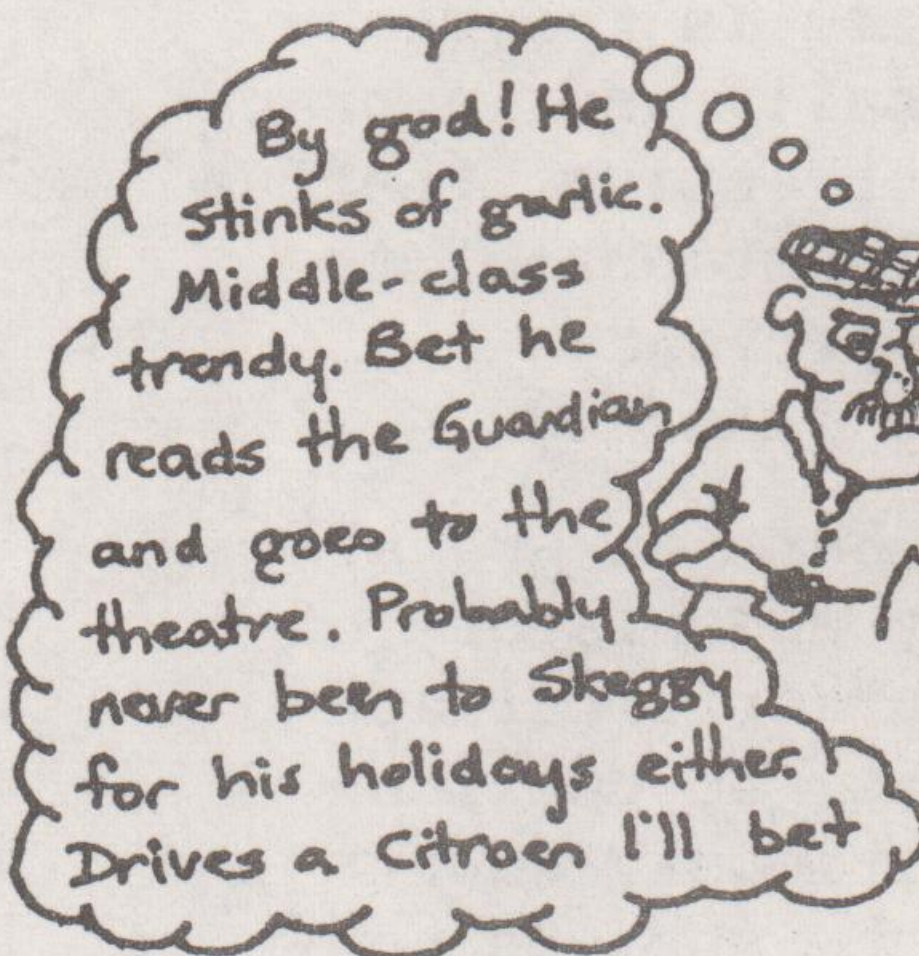 By god! He
stinks of garlic.
Middle-class
trendy. Bet he
reads the Guardian
and goes to the
theatre. Probably
never been to Skeggy
for his holidays either.
Drives a Citroen I'll bet